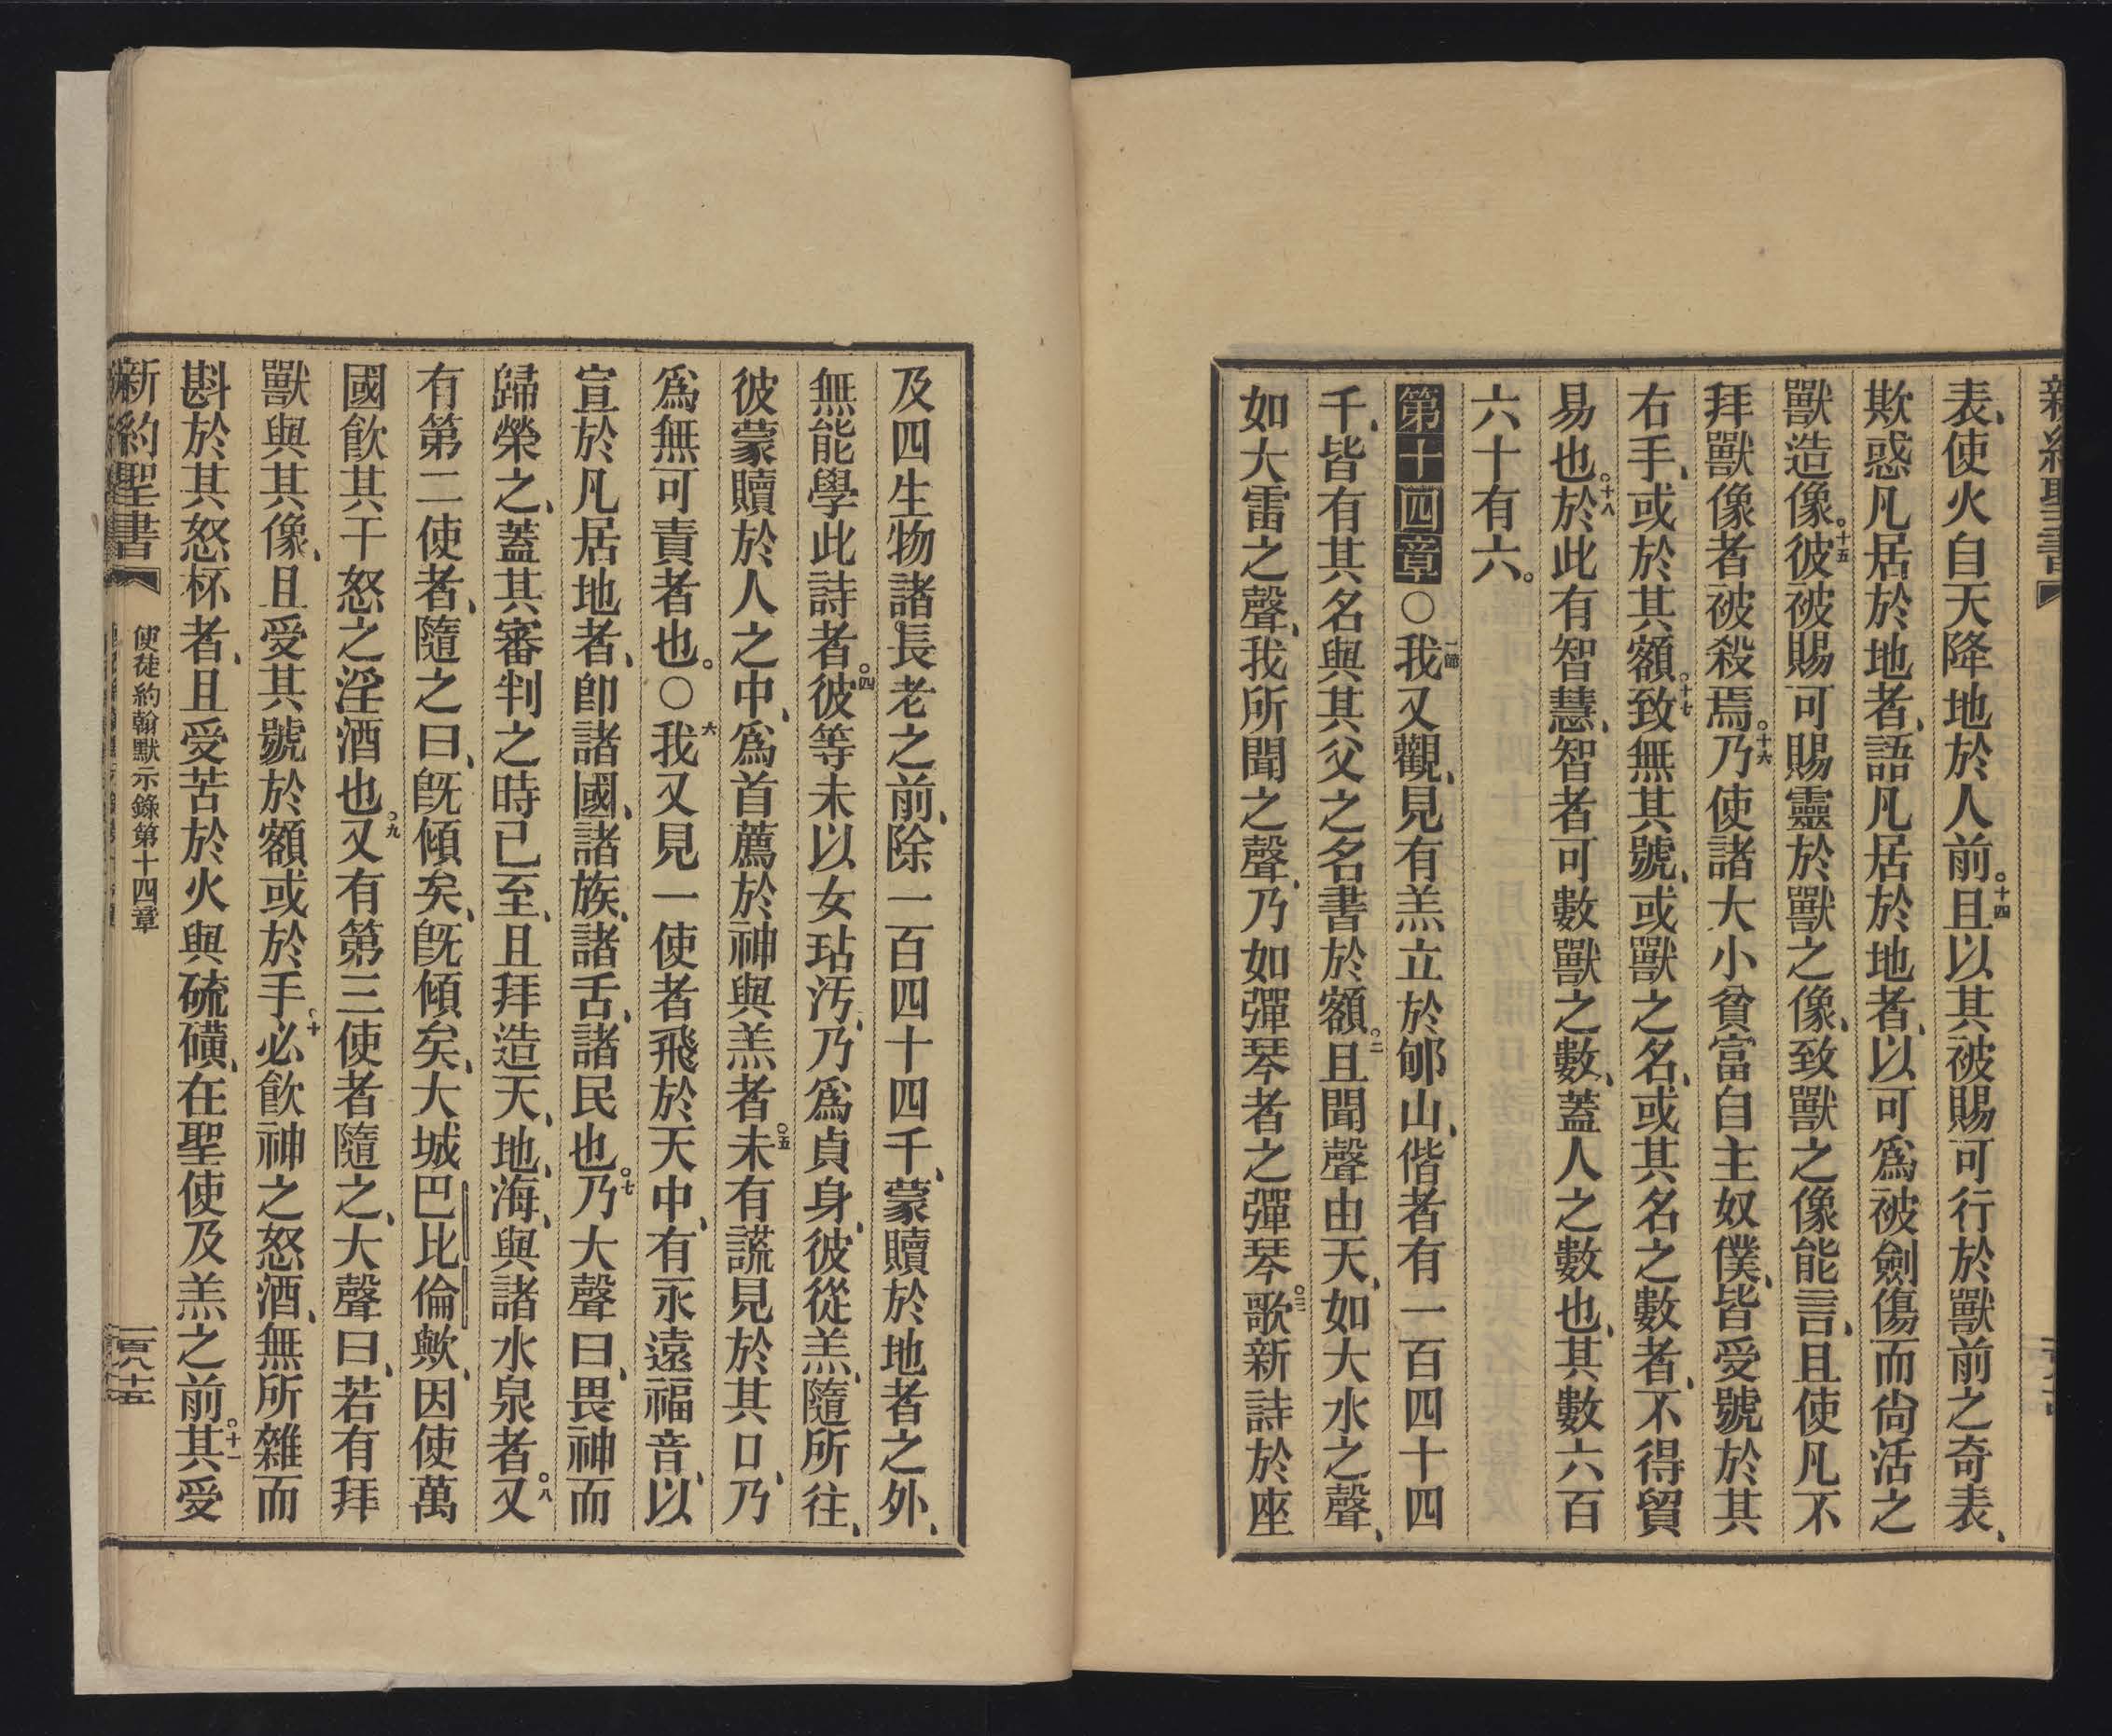 新約聖書
表、使火自天降地於人前。十四且以其被賜可行於獸前之奇表、
欺惑凡居於地者、語凡居於地者、以可爲被劍傷而尙活之
獸造像。十五彼被賜可賜靈於獸之像、致獸之像能言、且使凡不
拜獸像者被殺焉。十六乃使諸大小貧富自主奴僕、皆受號於其
右手、或於其額。十七致無其號、或獸之名、或其名之數者、不得貿
易也。十八於此有智慧、智者可數獸之數、蓋人之數也、其數六百
六十有六。
第十四章〇一節我又觀、見有羔立於郇山、偕者有一百四十四
千、皆有其名與其父之名書於額。二且聞聲由天、如大水之聲、
如大雷之聲、我所聞之聲、乃如彈琴者之彈琴。三歌新詩於座
及四生物諸長老之前、除一百四十四千、蒙贖於地者之外、
無能學此詩者。四彼等未以女玷汚、乃爲貞身、彼從羔、隨所往、
彼蒙贖於人之中、爲首薦於神與羔者。五未有謊見於其口、乃
爲無可責者也。〇六我又見一使者飛於天中、有永遠福音、以
宣於凡居地者、卽諸國、諸族、諸舌、諸民也。七乃大聲曰、畏神而
歸榮之、蓋其審判之時已至、且拜造天、地、海、與諸水泉者。八又
有第二使者、隨之曰、旣傾矣、旣傾矣、大城巴比倫歟、因使萬
國飮其干怒之淫酒也。九又有第三使者隨之、大聲曰、若有拜
獸與其像、且受其號於額或於手。十必飮神之怒酒、無所雜而
斟於其怒杯者、且受苦於火與硫磺、在聖使及羔之前。十一其受
新約聖書
使徒約翰默示錄第十四章
一百八十五